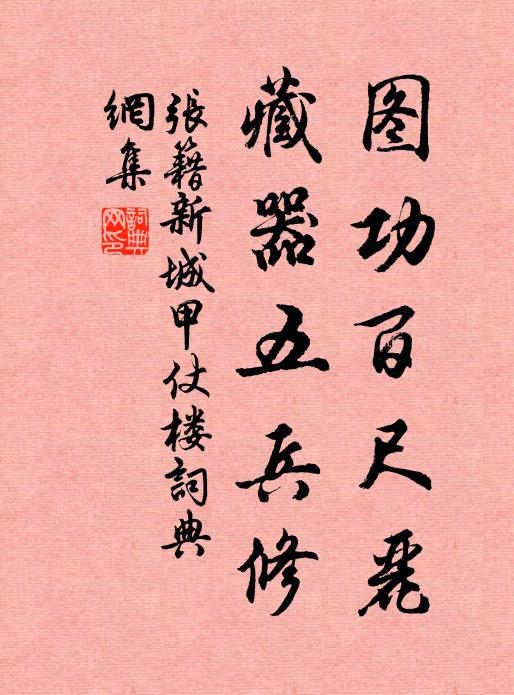 图功百尺麗
藏器五兵修
張籍新城甲仗楼詞典
網集
詞典
网印